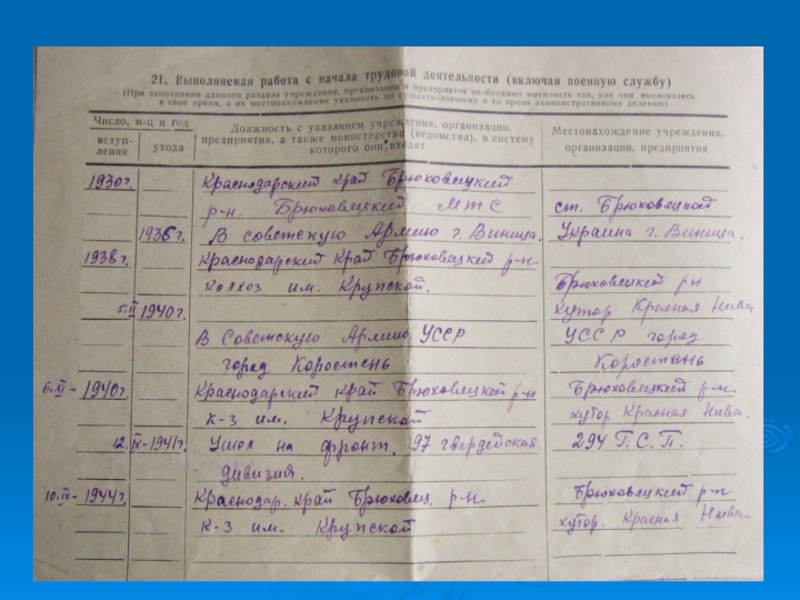 21. Выполняемая работа с начала трудовой деятельности (включая военную службу)
(При заполнении данного раздела учреждения, организации и предприятия необходимо именовать так, как они именовались
в свое время, а их местонахождение указывать по существовавшему в то время административному делению)
Число, м-ц и год
вступ-
ления
ухода
Должность с указанием учреждения, организации,
предприятия, а также министерства (ведомства), в систему
которого они входят
Местонахождение учреждения,
организации, предприятия
1930г. Краснодарский край Брюховецкий
р-н. Брюховецкий МТС ст. Брюховецкой
1936г. В советскую Армию г. Виница. Украина г. Виница.
1938г. Краснодарский край Брюховецкий р-н
колхоз им. Крупской. Брюховецкий рн
5.II 1940г. хутор Красная Нива
В Советскую Армию УССР УССР город
город Коростень Коростень
6.XI - 1940г. Краснодарский край Брюховецкой р-н Брюховецкий р-н
к-з им. Крупской хутор Красная Нива.
12.IX-1941г. Ушол на фронт. 97 гвардейская 294 Г.С.П.
дивизия.
10.IX-1944г. Краснодар. край Брюховец. р-н Брюховецкий р-н
к-з им. Крупской хутор. Красная Нива